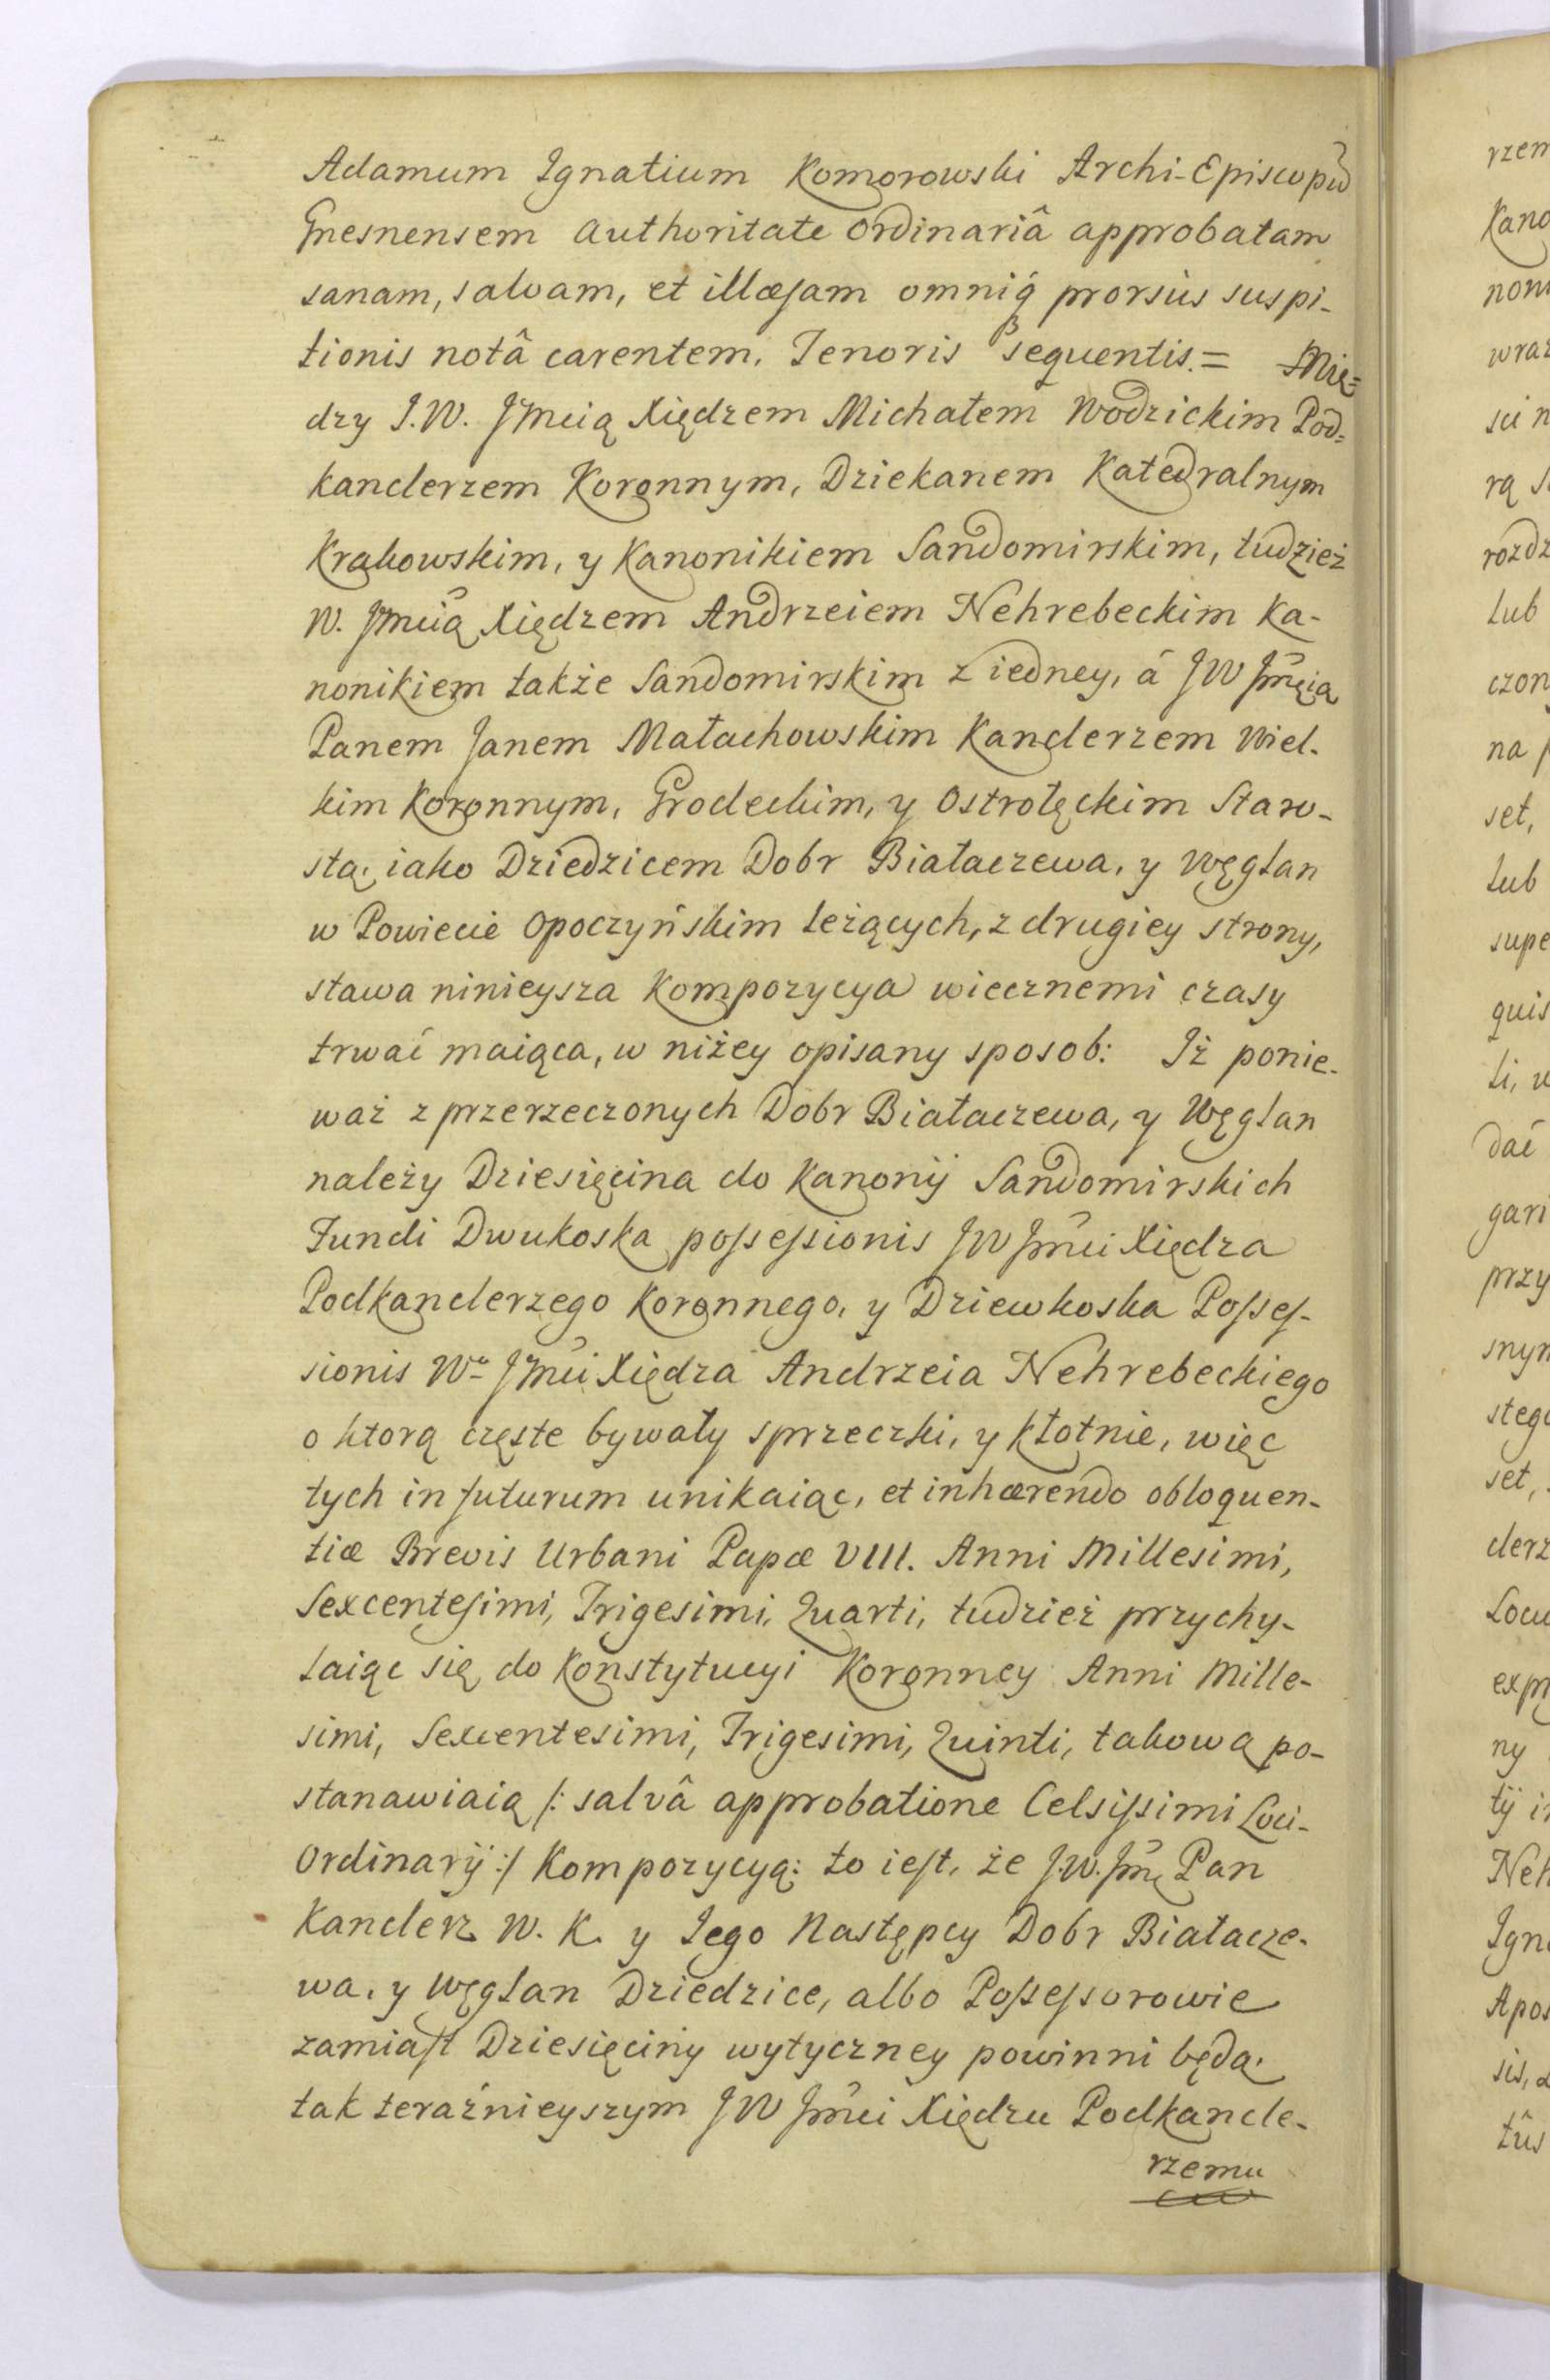 Adamum Ignatium Komorowski Archi-Episcopũ
Gnesnensem authoritate ordinariâ approbatam
sanam, salvam, et illæsam omniq́ prorsùs suspi-
tionis notâ carentem. Tenoris sequentis. = Mię=
dzy J.W. Jmcią Xiędzem Michałem Wodzickim Pod=
kanclerzem Koronnym, Dziekanem Katedralnym
Krakowskim, y Kanonikiem Sandomirskim, tudzież
W. Jmcią Xiędzem Andrzeiem Nehrebeckim Ka-
nonikiem także Sandomirskim z iedney, á JW Jmcią
Panem Janem Małachowskim Kanclerzem Wiel-
kim Koronnym, Grodeckim, y Ostrołęckim Staro-
stą, iako Dziedzicem Dobr Białaczewa, y Węglan
w Powiecie Opoczyńskim leżących, z drugiey strony,
stawa ninieysza Kompozycya wiecznemi czasy
trwać maiąca, w niżey opisany sposob: Iż ponie-
waż z przerzeczonych Dobr Białaczewa, y Węglan
należy Dziesięcina do Kanonij Sandomirskich
Fundi Dwukoska possessionis JW Jmci Xiędza
Podkanclerzego Koronnego, y Dziewkoska Posses-
sionis Wo Jmci Xiędza Andrzeia Nehrebeckiego
o ktorą częste bywały sprzeczki, y kłotnie, więc
tych in futurum unikaiąc, et inhærendo obloquen-
tiæ Brevis Urbani Papæ VIII. Anni Millesimi,
Sexcentesimi, Trigesimi, Quarti, tudzież przychy-
laiąc się do Konstytucyi Koronney Anni Mille-
simi, Sexcentesimi, Trigesimi, Quinti, takową po-
stanawiaią /: salvâ approbatione Celsissimi Loci-
Ordinarij :/ Kompozycyą: to iest, że J.W. Jmć Pan
Kanclerz W. K. y Iego Następcy Dobr Białacze-
wa, y Węglan Dziedzice, albo Possessorowie
zamiast Dziesięciny wytyczney powinni będą,
tak teraźnieyszym JW Jmci Xiędzu Podkancle-
rzemu
rzem
Kano
noni
wraz
sci n
rą
rozdz
lub
czon
na
set,
lub
supe
quis
li,
dać
gari
przy
snym
stego
set,
clerz
Locu
exp
ny
tij
Neh
Igna
Apos
sis,
tûs